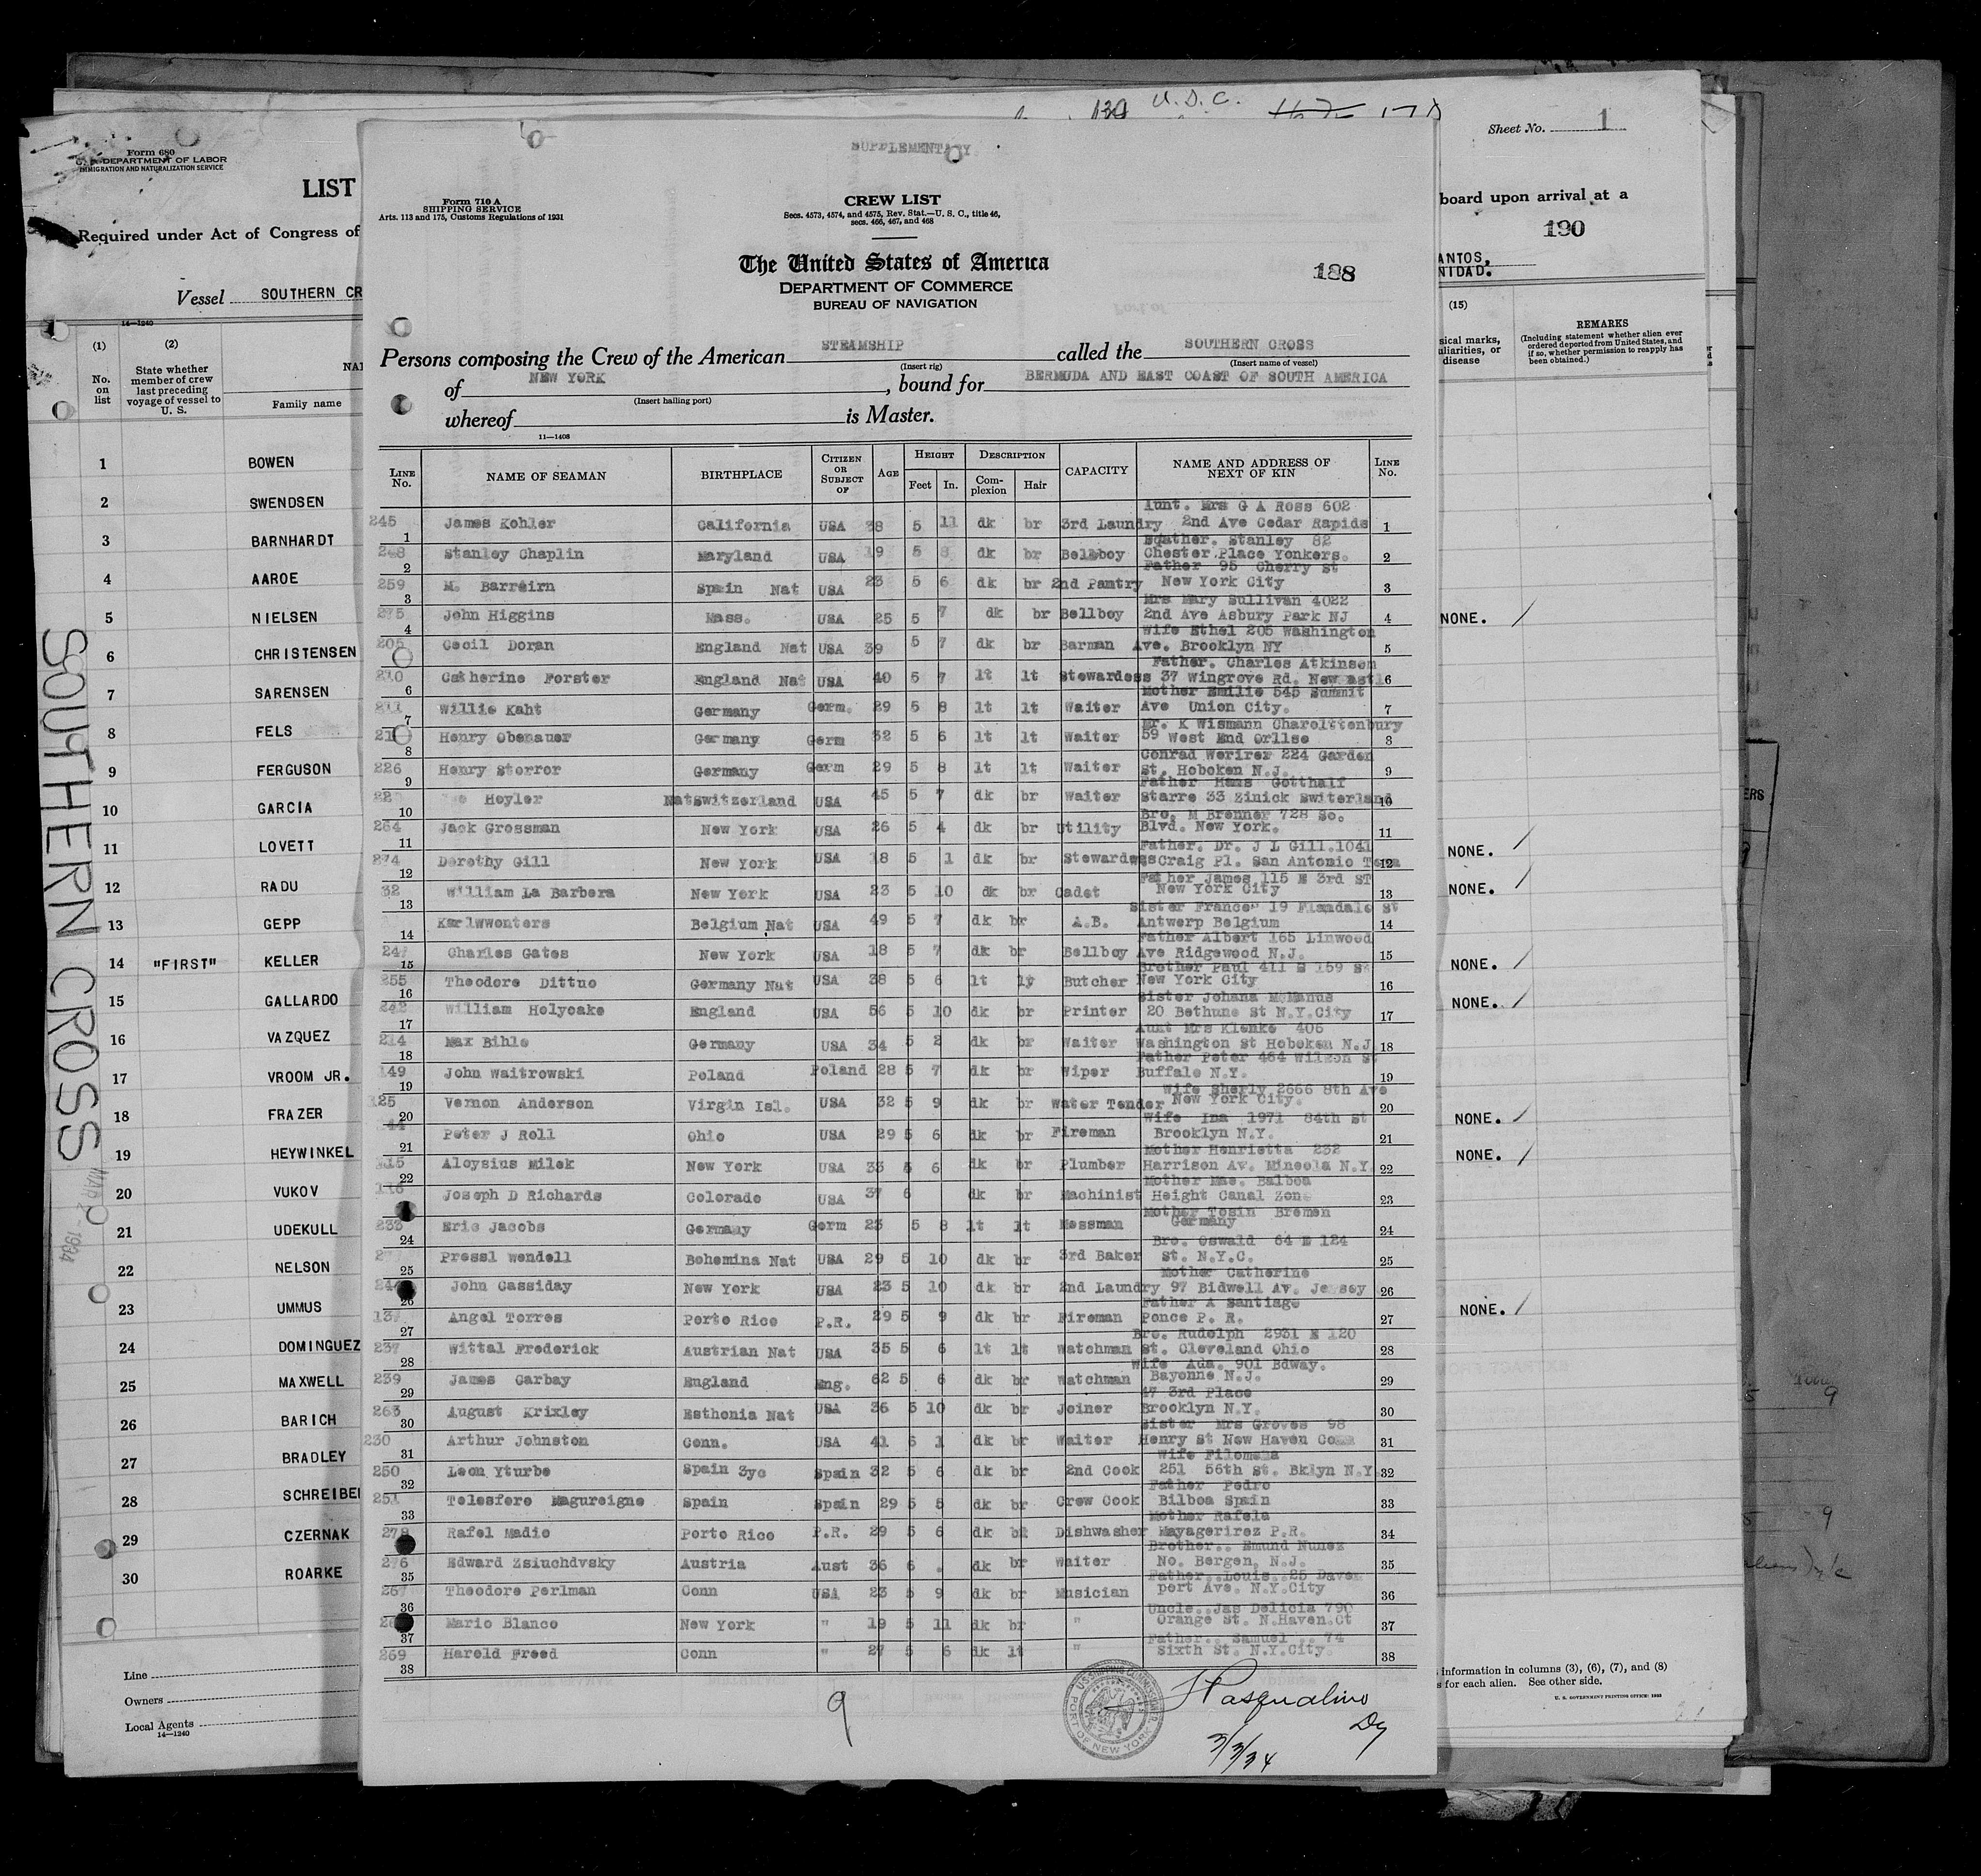 Form 680
U. S. DEPARTMENT OF LABOR
IMMIGRATION AND NATURALIZATION SERVICE
LIST
Required under Act of Congress of
Vessel SOUTHERN CR
14—1240
(1) (2)
No. on list
State whether member of crew last preceding voyage of vessel to U. S.
NA
Family name
1 BOWEN
2 SWENDSEN
3 BARNHARDT
4 AAROE
5 NIELSEN
6 CHRISTENSEN
7 SARENSEN
8 FELS
9 FERGUSON
10 GARCIA
11 LOVETT
12 RADU
13 GEPP
14 "FIRST" KELLER
15 GALLARDO
16 VAZQUEZ
17 VROOM JR.
18 FRAZER
19 HEYWINKEL
20 VUKOV
21 UDEKULL
22 NELSON
23 UMMUS
24 DOMINGUEZ
25 MAXWELL
26 BARICH
27 BRADLEY
28 SCHREIBE
29 CZERNAK
30 ROARKE
Line
Owners
Local Agents
14—1240
SOUTHERN CROSS
MAR 2 - 1934
U.S.C.
SUPPLEMENTARY
Form 710 A
SHIPPING SERVICE
Arts. 113 and 175, Customs Regulations of 1931
CREW LIST
Secs. 4573, 4574, and 4575, Rev. Stat.—U. S. C., title 46,
secs. 466, 467, and 468
The United States of America
DEPARTMENT OF COMMERCE
BUREAU OF NAVIGATION
188
Persons composing the Crew of the American STEAMSHIP called the SOUTHERN CROSS
(Insert rig) (Insert name of vessel)
of NEW YORK , bound for BERMUDA AND EAST COAST OF SOUTH AMERICA
(Insert hailing port)
whereof is Master.
11—1408
LINE No. NAME OF SEAMAN BIRTHPLACE CITIZEN OR SUBJECT OF AGE HEIGHT Feet In. DESCRIPTION Complexion Hair CAPACITY NAME AND ADDRESS OF NEXT OF KIN LINE No.
Aunt. Mrs G A Ross 602
245 1 James Kohler California USA 38 5 11 dk br 3rd Laundry 2nd Ave Cedar Rapids 1
Father. Stanley 82
248 2 Stanley Chaplin Maryland USA 19 5 8 dk br Bellboy Chester Place Yonkers. 2
Father 95 Cherry St
259 3 M. Barreirn Spain Nat USA 23 5 6 dk br 2nd Pantry New York City 3
Mrs Mary Sullivan 4022
275 4 John Higgins Mass. USA 25 5 7 dk br Bellboy 2nd Ave Asbury Park NJ 4
Wife Ethel 205 Washington
205 Cecil Doran England Nat USA 39 5 7 dk br Barman Ave. Brooklyn NY 5
Father. Charles Atkinson
210 6 Catherine Forster England Nat USA 40 5 7 lt lt Stewardess 37 Wingrove Rd. Newcastl 6
Mother Emilie 545 Summit
211 7 Willie Kaht Germany Germ. 29 5 8 lt lt Waiter Ave Union City. 7
Mr. K Wismann Charolttenbury
8 Henry Obenauer Germany Germ 32 5 6 lt lt Waiter 59 West End Orllse 8
Conrad Werirer 224 Garden
226 9 Henry Storror Germany Germ 29 5 8 lt lt Waiter St. Hoboken N.J. 9
Father Hans Gotthalf
10 Hoyler Nat Switzerland USA 45 5 7 dk br Waiter Starre 33 Zinick Switerland 10
Bro. M Brenner 728 So.
264 11 Jack Grossman New York USA 26 5 4 dk br Utility Blvd. New York. 11
Father. Dr. J L Gill.1041
274 12 Dorothy Gill New York USA 18 5 1 dk br Stewardess Craig Pl. San Antonio Texa 12
Father James 115 E 3rd ST
32 13 William La Barbera New York USA 23 5 10 dk br Cadet New York City 13
Sister Frances 19 Flandale St
14 Karlwwonters Belgium Nat USA 49 5 7 dk br A.B. Antwerp Belgium 14
Father Albert 165 Linwood
15 Charles Gates New York USA 18 5 7 dk br Bellboy Ave Ridgewood N.J. 15
Brother Paul 411 E 159 St
255 16 Theodore Dittue Germany Nat USA 38 5 6 lt lt Butcher New York City 16
Sister Johana McManus
242 17 William Holyoake England USA 56 5 10 dk br Printer 20 Bethune St N.Y.City 17
Aunt Mrs Klenke 406
214 18 Max Bihle Germany USA 34 5 2 dk br Waiter Washington St Hoboken N.J 18
Father Peter 464 Wilson St
149 19 John Waitrowski Poland Poland 28 5 7 dk br Wiper Buffale N.Y. 19
Wife Sherly 2666 8th Ave
125 20 Vernon Anderson Virgin Isl. USA 32 5 9 dk br Water Tender New York City. 20
Wife Ina 1971 84th St
21 Peter J Roll Ohio USA 29 5 6 dk br Fireman Brooklyn N.Y. 21
Mother Henrietta 232
22 Aloysius Milek New York USA 33 5 6 dk br Plumber Harrison Av. Mineola N.Y. 22
Mother Mae. Balboa
Joseph D Richards Colorado USA 37 6 dk br Machinist Height Canal Zone 23
Mother Tosin Bremen
233 24 Eric Jacobs Germany Germ 23 5 8 lt lt Messman Germany 24
Bro. Oswald 64 E 124
25 Pressl Wendell Bohemina Nat USA 29 5 10 dk br 3rd Baker St. N.Y.C. 25
Mother Catherine
26 John Cassiday New York USA 23 5 10 dk br 2nd Laundry 97 Bidwell Av. Jersey 26
Father A Santiago
137 27 Angel Torres Porto Rico P.R. 29 5 9 dk br Fireman Ponce P. R. 27
Bro. Rudolph 2931 E 120
237 28 Wittal Frederick Austrian Nat USA 35 5 6 lt lt Watchman St. Cleveland Ohio 28
Wife Ada. 901 Bdway.
239 29 James Garbay England Eng. 62 5 6 dk br Watchman Bayonne N.J. 29
47 3rd Place
263 30 August Krixley Esthonia Nat USA 36 5 10 dk br Joiner Brooklyn N.Y. 30
Sister Mrs Groves 98
230 31 Arthur Johnston Conn. USA 41 6 1 dk br Waiter Henry St New Haven Conn 31
Wife Filomena
250 32 Leon Yturbe Spain 3yc Spain 32 5 6 dk br 2nd Cook 251 56th St. Bklyn N.Y. 32
Father Pedro
251 33 Telesfore Magureigne Spain Spain 29 5 5 dk br Crew Cook Bilboa Spain 33
Mother Rafela
278 Rafel Madio Porto Rico P.R. 29 5 6 dk bl Dishwasher Mayagerirez P.R. 34
Brother.. Emund Nunez
276 35 Edward Zsiuchdvsky Austria Aust 36 6 . dk br Waiter No. Bergen, N.J. 35
Father..Louis..25 Daven
267 36 Theodore Perlman Conn USA 23 5 9 dk br Musician port Ave. N.Y.City 36
Uncle..Jas Delicia 790
37 Mario Blanco New York " 19 5 11 dk br " Orange St. N.Haven.Ct 37
Father.. Samuel .. 74
269 38 Harold Freed Conn " 27 5 6 dk lt " Sixth St. N.Y.City. 38
9
U.S. SHIPPING COMMISSIONER
PORT OF NEW YORK
Pasqualino
Dy
3/3/34
Sheet No. 1
board upon arrival at a
190
ANTOS,
NIDAD.
(15)
sical marks,
uliarities, or
disease
REMARKS
(Including statement whether alien ever
ordered deported from United States, and
if so, whether permission to reapply has
been obtained.)
NONE. /
NONE. /
NONE. /
NONE. /
NONE. /
NONE. /
NONE. /
NONE. /
information in columns (3), (6), (7), and (8)
s for each alien. See other side.
U. S. GOVERNMENT PRINTING OFFICE: 1933
ERS
9
9